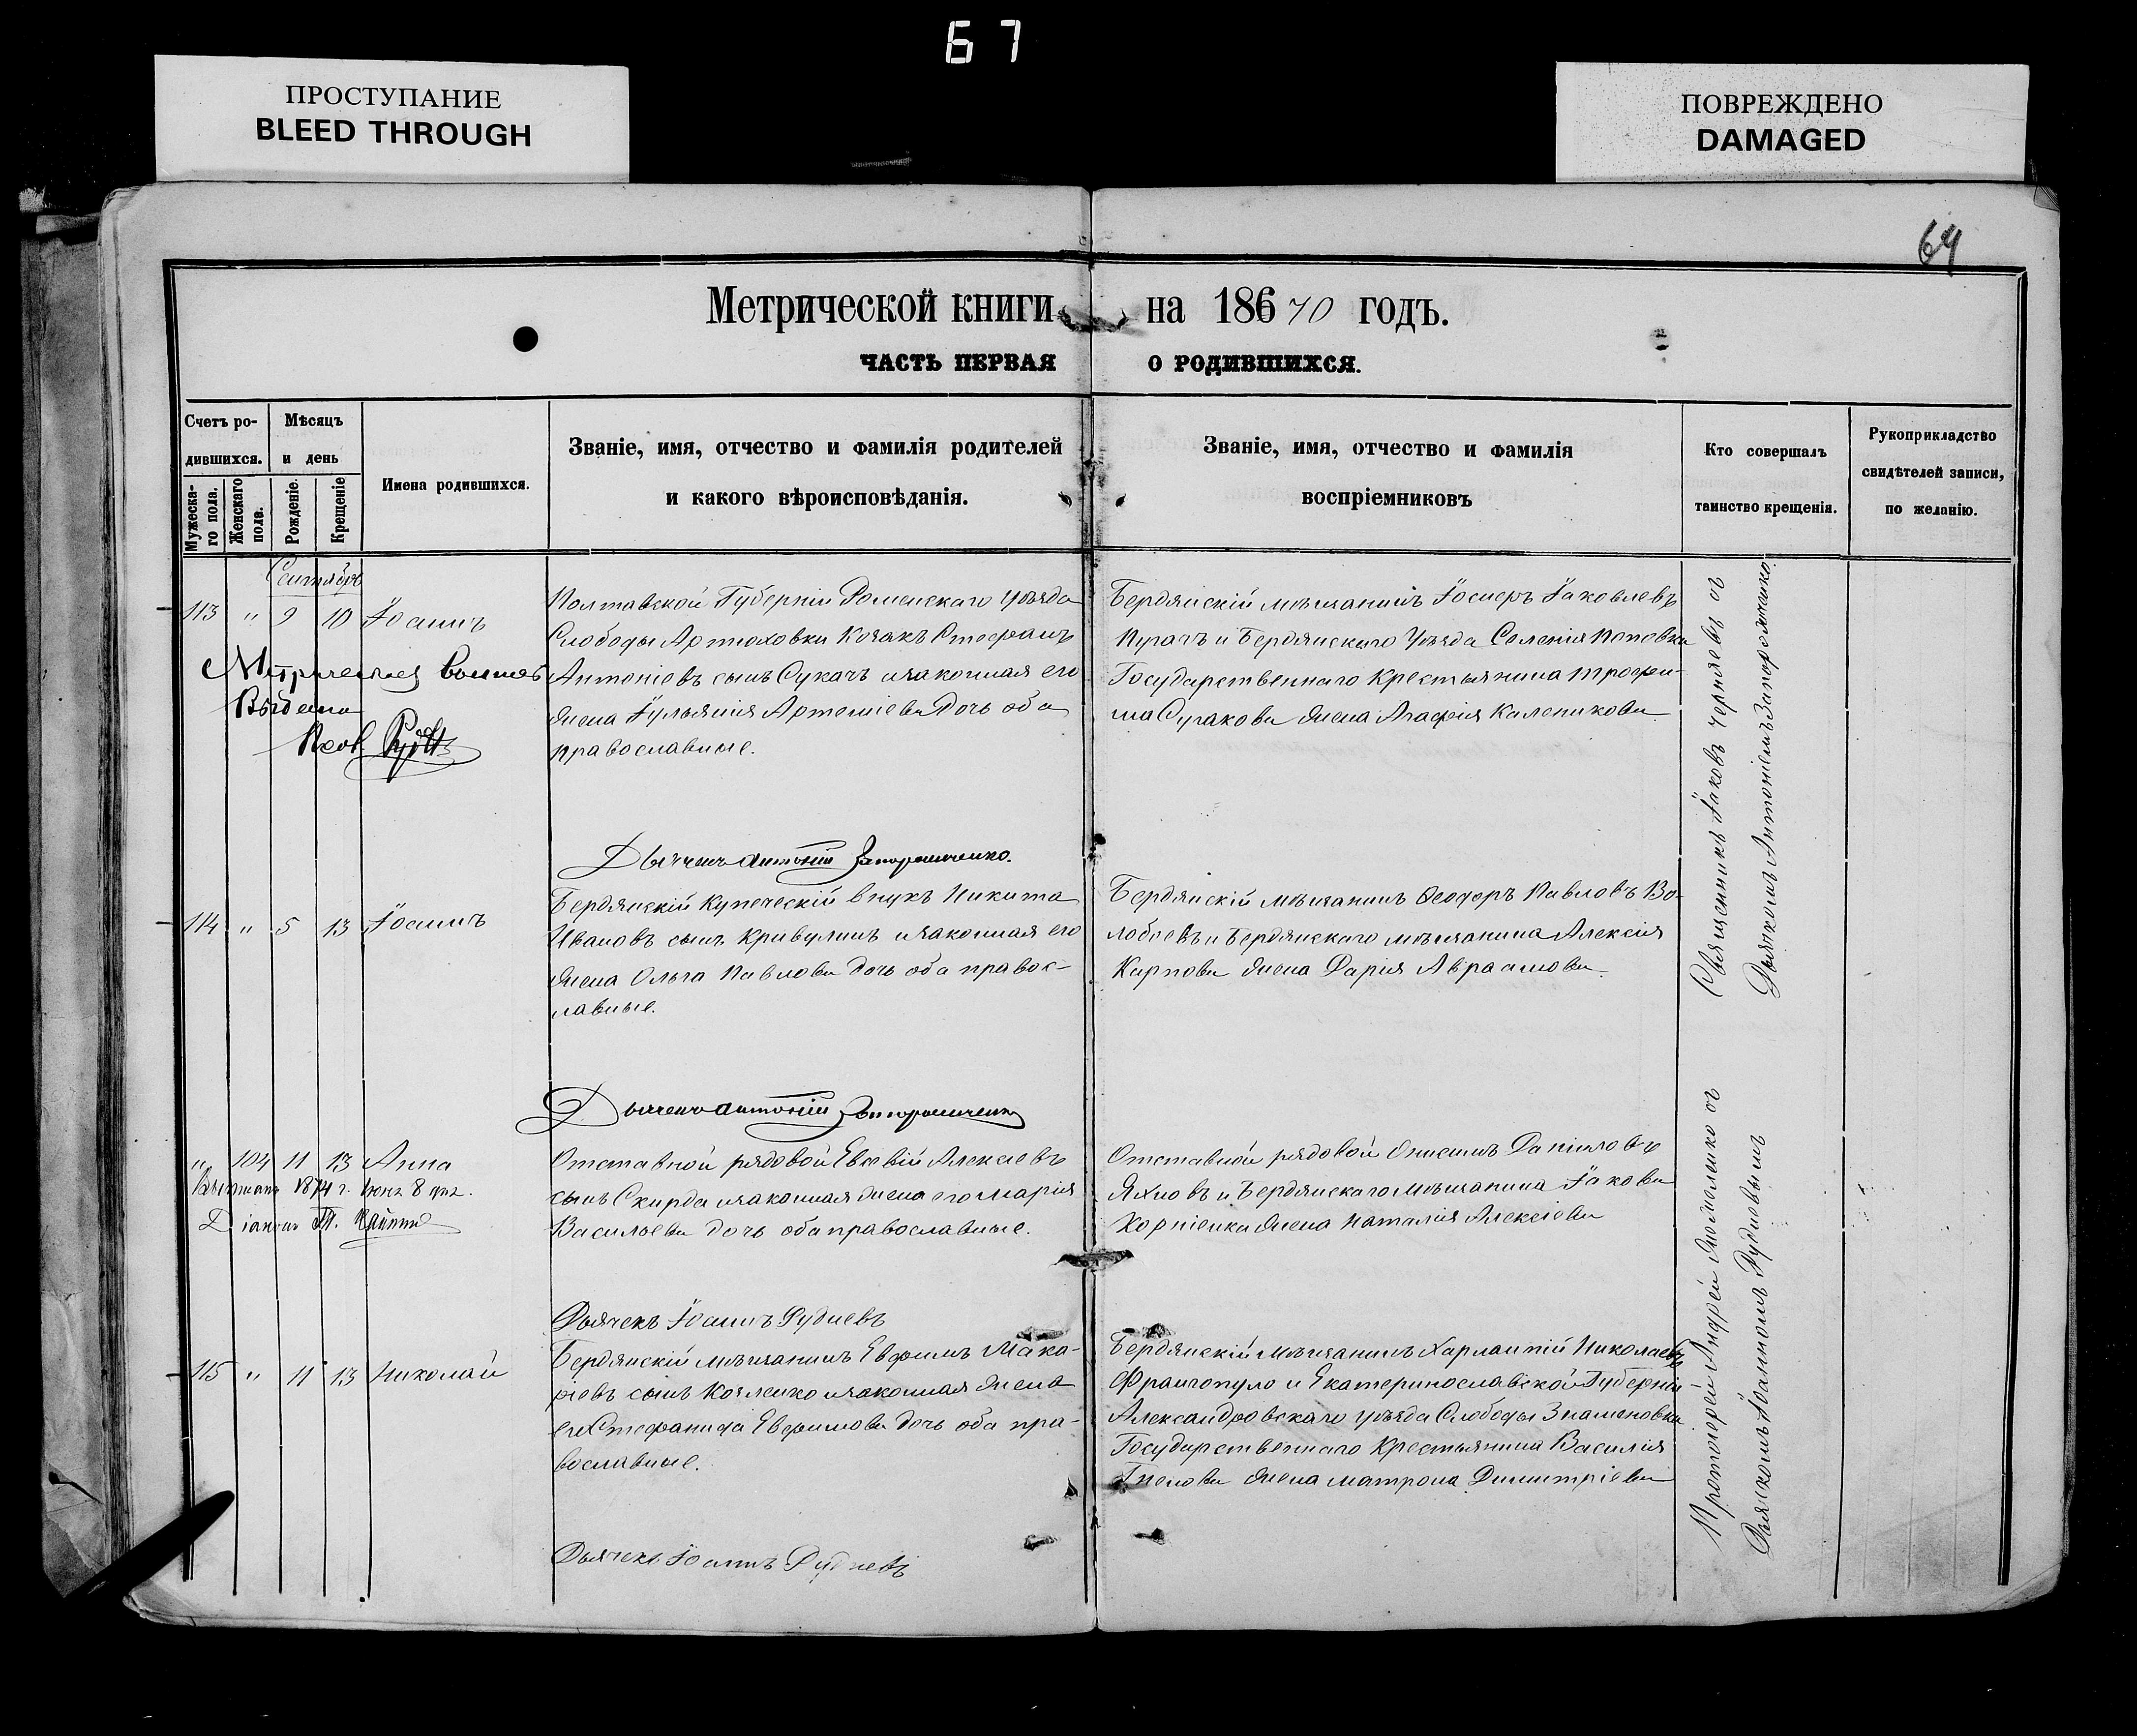 67
ПРОСТУПАНИЕ
BLEED THROUGH
ПОВРЕЖДЕНО
DAMAGED
64
Метрической книги на 18670 годъ.
ЧАСТЬ ПЕРВАЯ О РОДИВШИХСЯ.
Счетъ родившихся.
Мужескаго пола.
Женскаго пола.
Мѣсяцъ и день
Рожденіе.
Крещеніе
Имена родившихся.
Званіе, имя, отчество и фамилія родителей
и какого вѣроисповѣданія.
Званіе, имя, отчество и фамилія
воспріемниковъ
Кто совершалъ
таинство крещенія.
Рукоприкладство
свидѣтелей записи,
по желанію.
Сентябрь
113 " 9 10 Іоаннъ
Полтавской Губерніи Роменскаго уѣзда
Слободы Артюховки Козакъ Стефанъ
Антоніевъ сынъ Сукачъ изаконная его
жена Іульянія Артеміева дочь оба
православные.
Бердянскій мѣщанинъ Іосифъ Іаковлевъ
Пугачъ и Бердянскаго Уѣзда Селенія Поповки
Государственнаго Крестьянина Трофи-
ма Сугакова жена Агафія Каленикова
Выдана
Дьячекъ Антоній Запорожченко.
114 " 5 13 Іоаннъ
Бердянскій Купеческій внукъ Никита
Ивановъ сынъ Кривулинъ изаконная его
жена Ольга Павлова дочь оба правос-
лавные.
Бердянскій мѣщанинъ Ѳеодоръ Павловъ Во-
лобоевъ и Бердянскаго мѣщанина Алексія
Карпова жена Дарія Авраамова.
Священникъ Іаковъ Чернявъ съ
Дьячкомъ Антоніемъ Запорожченко.
Дьячекъ Антоній Запорожченко
" 104 11 13 Анна
1874 г. 8 дня.
Отставной рядовой Евсевій Алексіевъ
сынъ Скирда изаконная жена его Марія
Васильева дочь оба православные.
Отставной рядовой Онисимъ Даніиловъ
Яхновъ и Бердянскаго Мѣщанина Іакова
Корніенка жена Наталія Алексіева
Дьячекъ Іоаннъ Рудневъ
115 " 11 13 Николай
Бердянскій мѣщанинъ Евфимъ Мака-
ріевъ сынъ Козленко изаконная жена
его Стефанида Евфимова дочь оба пра-
вославные.
Бердянскій Мѣщанинъ Харлампій Николаевъ
Франгопуло и Екатеринославской Губерніи
Александровскаго уѣзда Слободы Знаменовки
Государственнаго Крестьянина Василія
жена Матрона Димитріева
Протоіерей Андрей съ
Дьячкомъ Іоанномъ Рудневымъ
Дьячекъ Іоаннъ Рудневъ